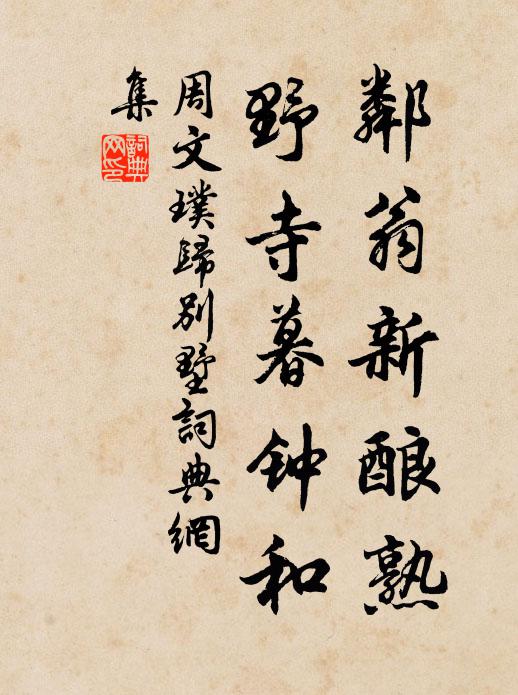 鄰翁新酿熟
野寺暮钟和
周文璞歸别墅詞典網
集
詞典
网印